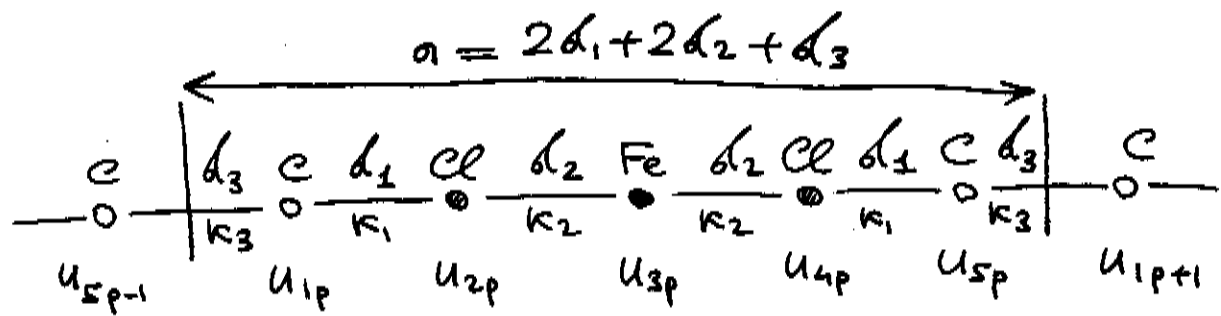 a = 2d₁+2d₂+d₃
C d₃ C d₁ Cl d₂ Fe d₂ Cl d₁ C d₃ C
K₃ K₁ K₂ K₂ K₁ K₃
u₅ₚ₋₁ u₁ₚ u₂ₚ u₃ₚ u₄ₚ u₅ₚ u₁ₚ₊₁